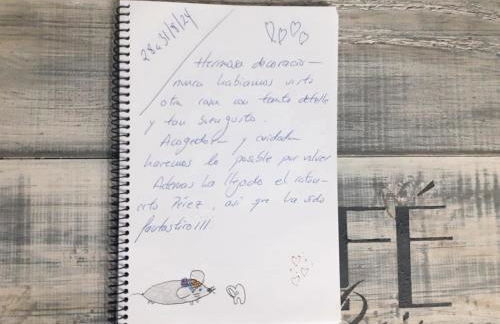 28 a 31/8/24
Hermosa decoración
nunca habíamos visto
otra casa con tanto detalle
y tan buen gusto.
Acogedora y cuidada
haremos lo posible por volver
Además ha llegado el raton-
cito Pérez, así que ha sido
fantastico!!!
FÉ